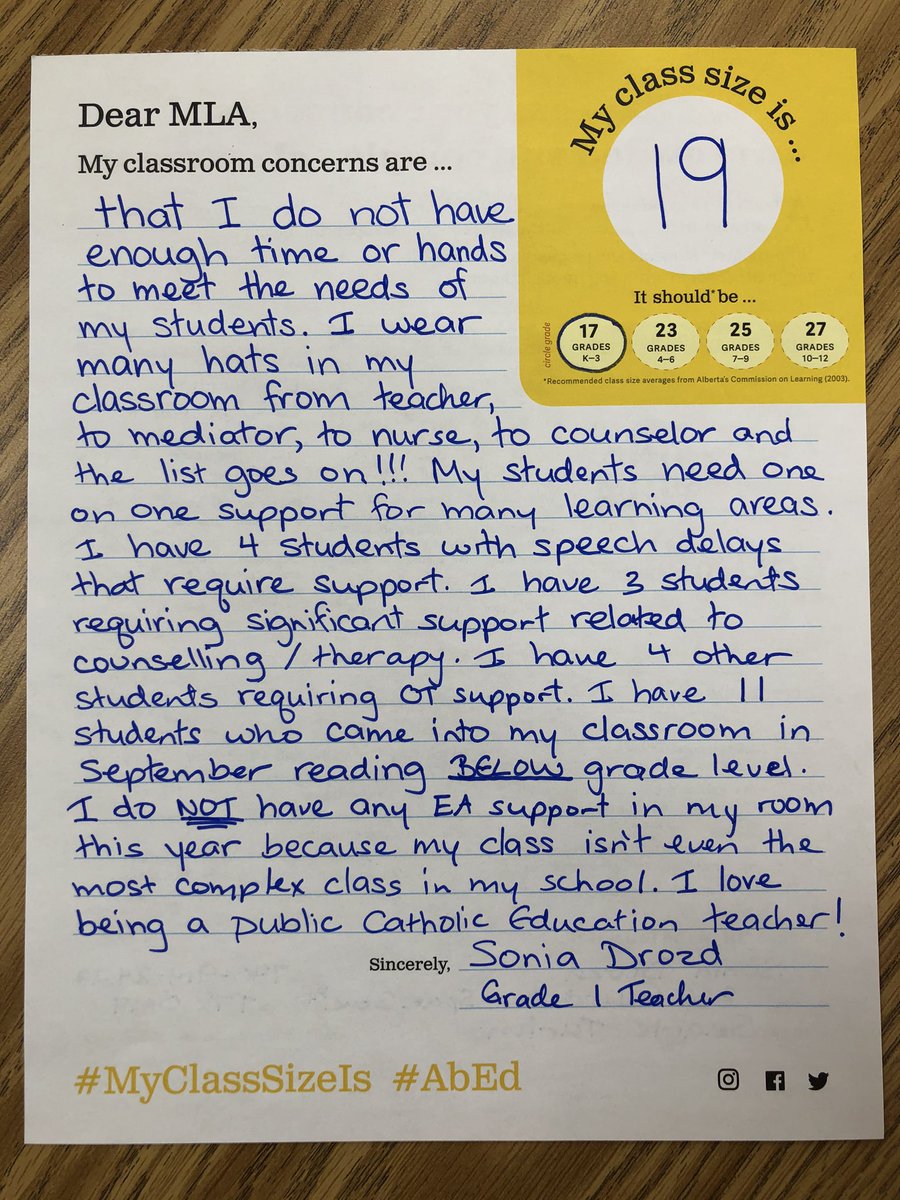 Dear MLA,
My classroom concerns are ...
My class size is ...
19
It should* be ...
circle grade
17 GRADES K–3
23 GRADES 4–6
25 GRADES 7–9
27 GRADES 10–12
*Recommended class size averages from Alberta's Commission on Learning (2003).
that I do not have
enough time or hands
to meet the needs of
my students. I wear
many hats in my
classroom from teacher,
to mediator, to nurse, to counselor and
the list goes on!!! My students need one
on one support for many learning areas.
I have 4 students with speech delays
that require support. I have 3 students
requiring significant support related to
counselling / therapy. I have 4 other
students requiring OT support. I have 11
students who came into my classroom in
September reading BELOW grade level.
I do NOT have any EA support in my room
this year because my class isn't even the
most complex class in my school. I love
being a public Catholic Education teacher!
Sincerely, Sonia Drozd
Grade 1 Teacher
#MyClassSizeIs #AbEd